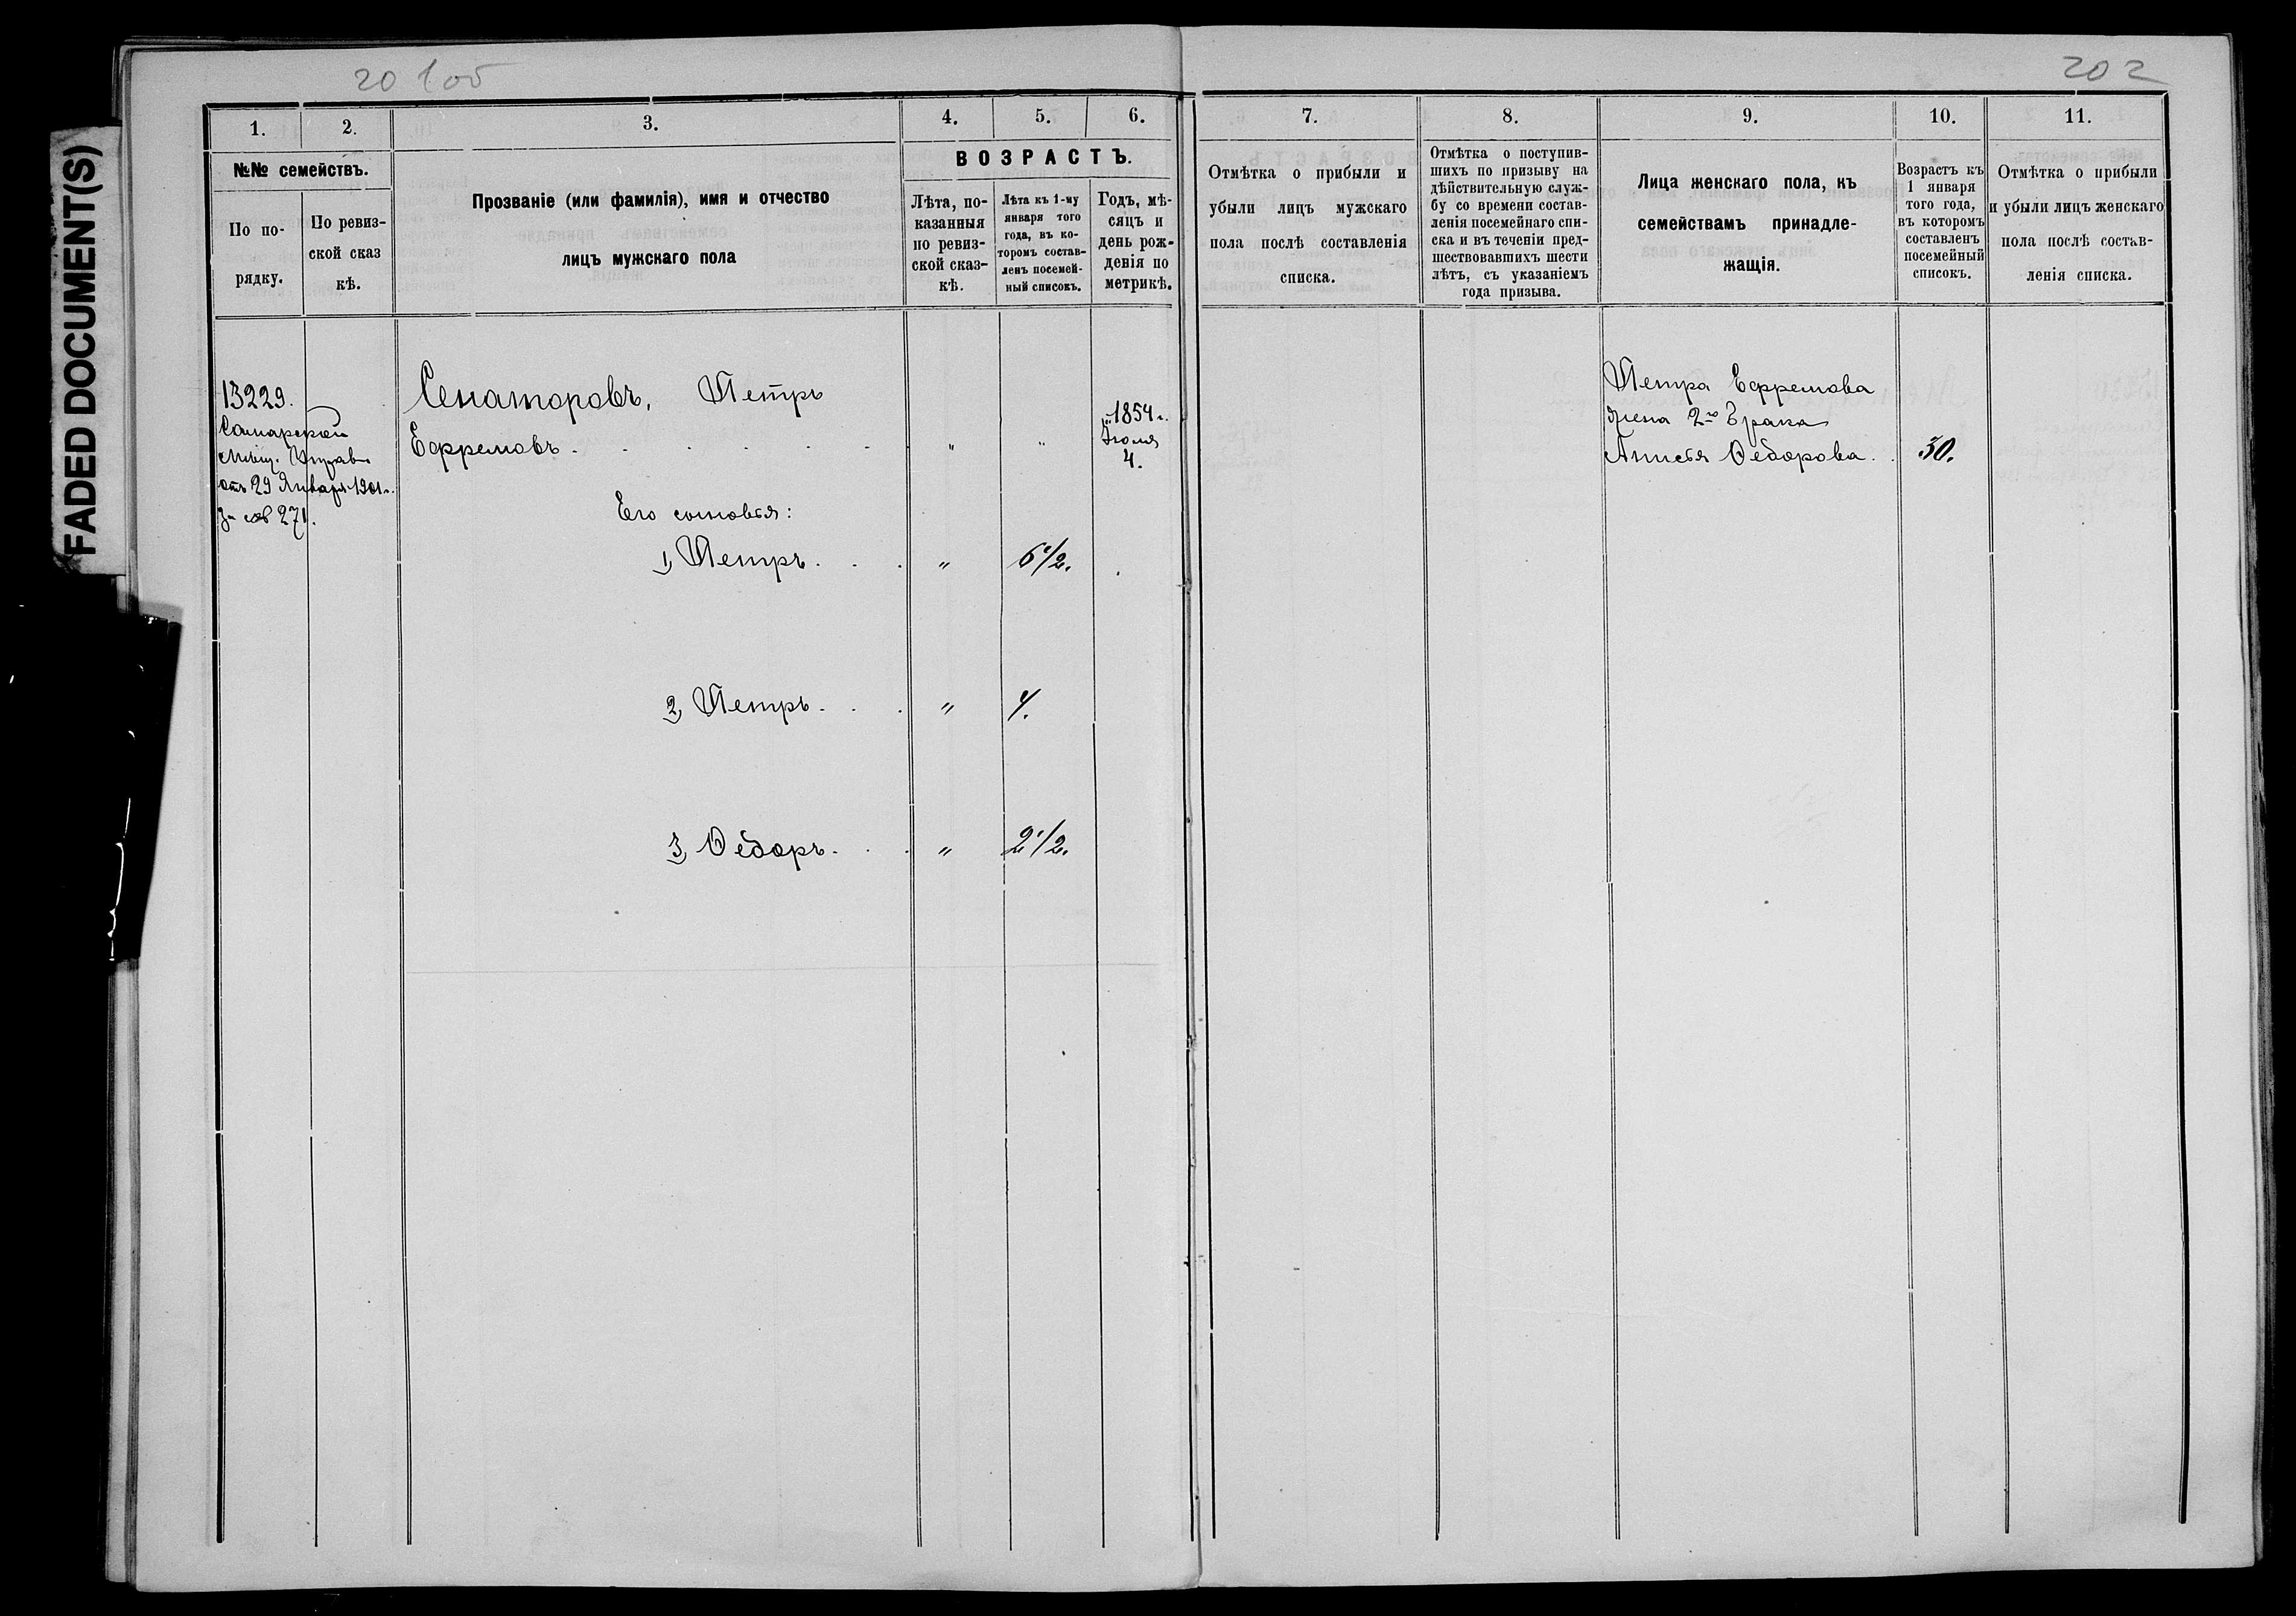 FADED DOCUMENT(S)
201об
202
1.
2.
3.
4.
5.
6.
7.
8.
9.
10.
11.
№№ семействъ.
По по-
рядку.
По ревиз-
ской сказ
кѣ.
Прозваніе (или фамилія), имя и отчество
лицъ мужскаго пола
ВОЗРАСТЪ.
Лѣта, по-
казанныя
по ревиз-
ской сказ-
кѣ.
Лѣта къ 1-му
января того
года, въ ко-
торомъ состав-
ленъ посемей-
ный списокъ.
Годъ, мѣ-
сяцъ и
день рож-
денія по
метрикѣ.
Отмѣтка о прибыли и
убыли лицъ мужскаго
пола послѣ составленія
списка.
Отмѣтка о поступив-
шихъ по призыву на
дѣйствительную служ-
бу со времени состав-
ленія посемейнаго спи-
ска и въ теченіи пред-
шествовавшихъ шести
лѣтъ, съ указаніемъ
года призыва.
Лица женскаго пола, къ
семействамъ принадле-
жащія.
Возрастъ къ
1 января
того года,
въ которомъ
составленъ
посемейный
списокъ.
Отмѣтка о прибыли
и убыли лицъ женскаго
пола послѣ состав-
ленія списка.
13229.
Самарской
Мѣщ. Управ.
отъ 29 Января 1901 г.
за № 271.
Сенаторовъ, Петръ
Ефремовъ . . . . . . " "
1854 г.
Іюля
4.
Его сыновья:
1, Петръ . . . " 6 1/2.
2, Петръ . . . " 4.
3, Ѳедоръ . . . " 2 1/2.
Петра Ефремова
жена 2го брака
Анисья Ѳедорова . 30.